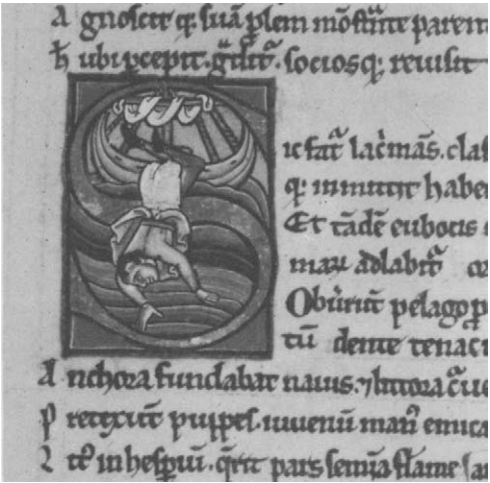 A gnoscit q; suā plem mōst̄nte parent
h ubi pcepit. g̃dit̃. sociosq; reuisit
S ic fat̃ lac̃mās. clas
q; inmittit habe
Et tādē eubois
mar̃ adlabit̃
Obūrūt pelago p
tū dente tenaci
A nchora fundabat nauis. ⁊ littora c̃ue
P retexūt puppes. iuuenū man̄ emica
L itt̃ in hesp̄iū. q̃rit pars semīa flāme